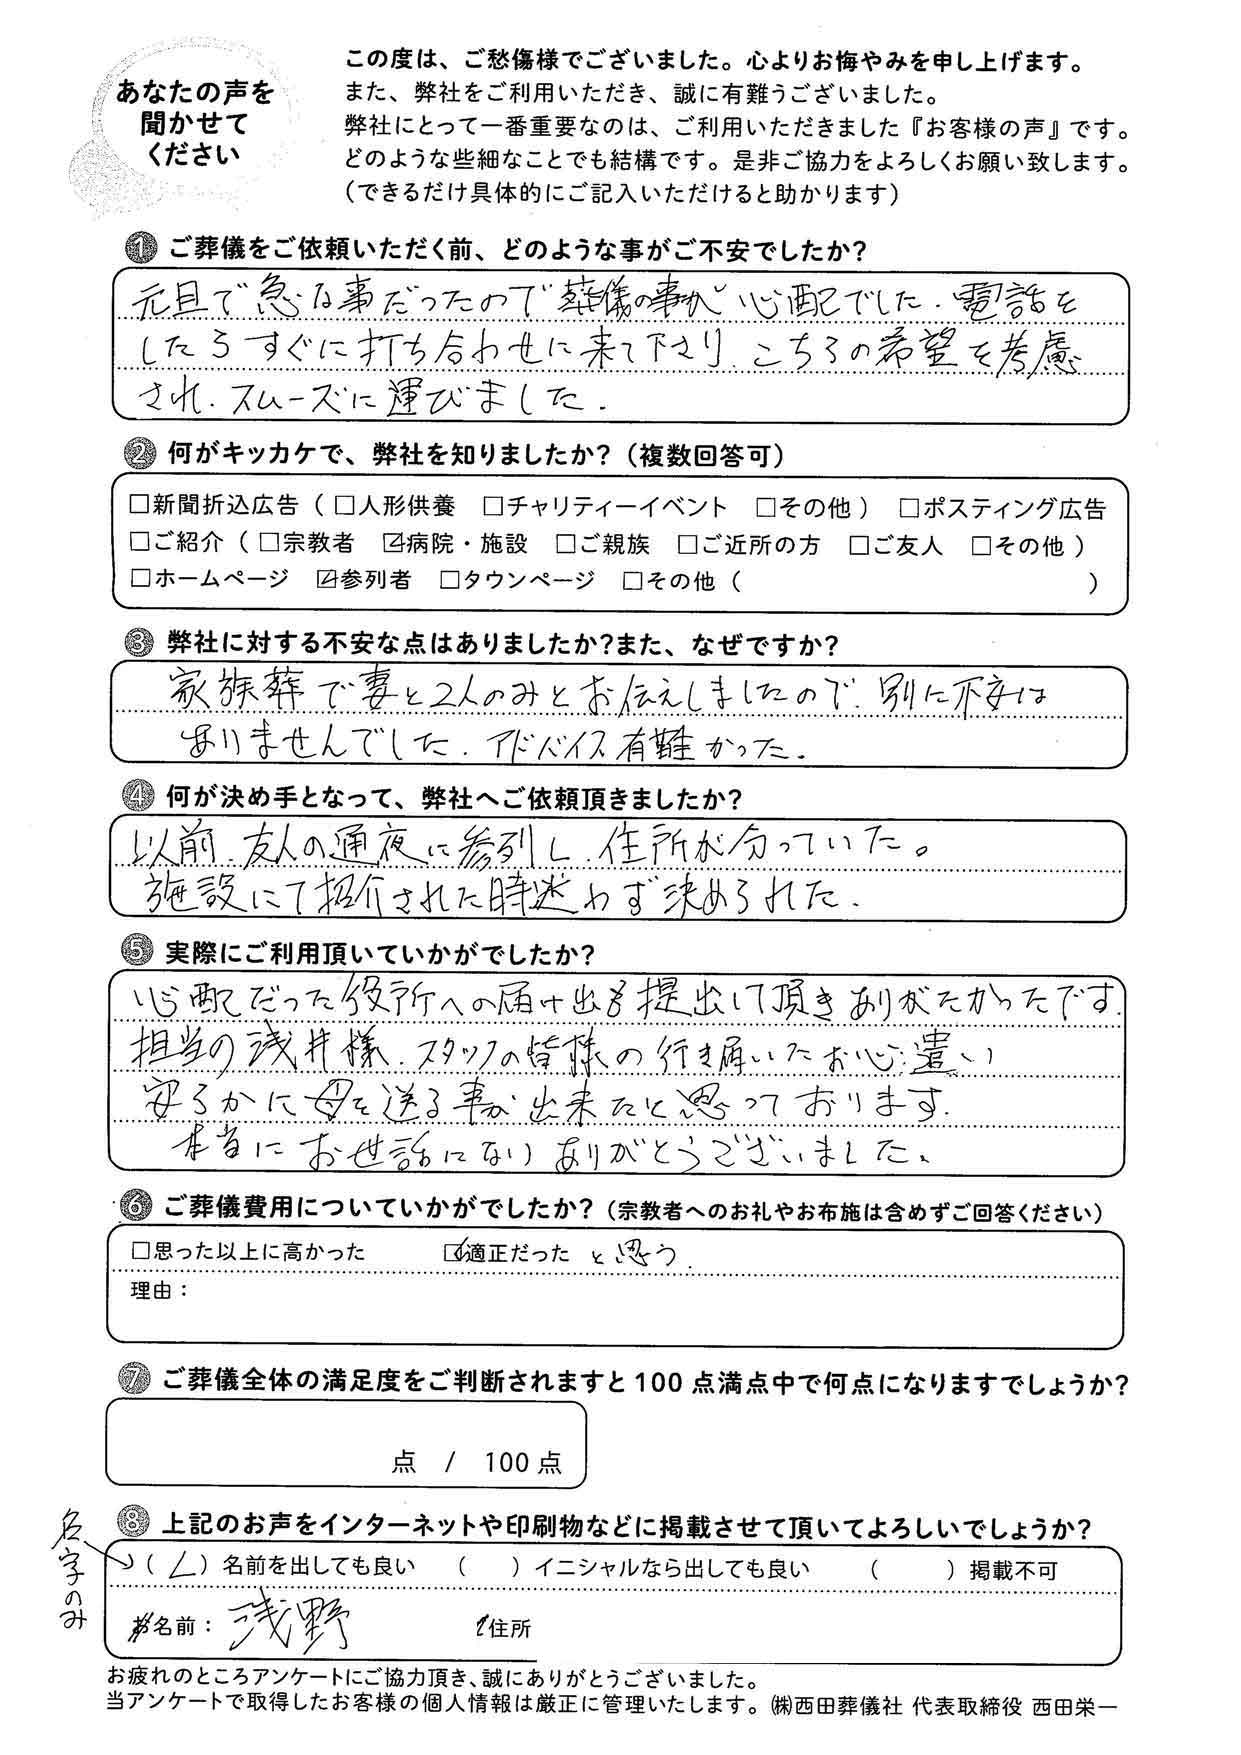 あなたの声を
聞かせて
ください
この度は、ご愁傷様でございました。心よりお悔やみを申し上げます。
また、弊社をご利用いただき、誠に有難うございました。
弊社にとって一番重要なのは、ご利用いただきました『お客様の声』です。
どのような些細なことでも結構です。是非ご協力をよろしくお願い致します。
（できるだけ具体的にご記入いただけると助かります）
① ご葬儀をご依頼いただく前、どのような事がご不安でしたか?
元旦で急な事だったので葬儀の事が心配でした．電話を
したらすぐに打ち合わせに来て下さり．こちらの希望を考慮
され．スムーズに運びました．
② 何がキッカケで、弊社を知りましたか?（複数回答可）
□新聞折込広告（ □人形供養 □チャリティーイベント □その他 ） □ポスティング広告
□ご紹介（ □宗教者 ☑病院・施設 □ご親族 □ご近所の方 □ご友人 □その他 ）
□ホームページ ☑参列者 □タウンページ □その他（ ）
③ 弊社に対する不安な点はありましたか?また、なぜですか?
家族葬で妻と2人のみとお伝えしましたので．別に不安は
ありませんでした．アドバイス有難かった．
④ 何が決め手となって、弊社へご依頼頂きましたか?
以前．友人の通夜に参列し．住所が分っていた。
施設にて招介された時迷わず決められた．
⑤ 実際にご利用頂いていかがでしたか?
心配だった役所への届け出も提出して頂きありがたかったです．
担当の浅井様．スタッフの皆様の行き届いたお心遣い
安らかに母を送る事が出来たと思っております．
本当にお世話になりありがとうございました．
⑥ ご葬儀費用についていかがでしたか?（宗教者へのお礼やお布施は含めずご回答ください）
□思った以上に高かった ☑適正だった と思う．
理由：
⑦ ご葬儀全体の満足度をご判断されますと100点満点中で何点になりますでしょうか?
点 / 100点
⑧ 上記のお声をインターネットや印刷物などに掲載させて頂いてよろしいでしょうか?
名字のみ
（✓）名前を出しても良い （ ）イニシャルなら出しても良い （ ）掲載不可
お名前：浅野 ご住所
お疲れのところアンケートにご協力頂き、誠にありがとうございました。
当アンケートで取得したお客様の個人情報は厳正に管理いたします。㈱西田葬儀社 代表取締役 西田栄一